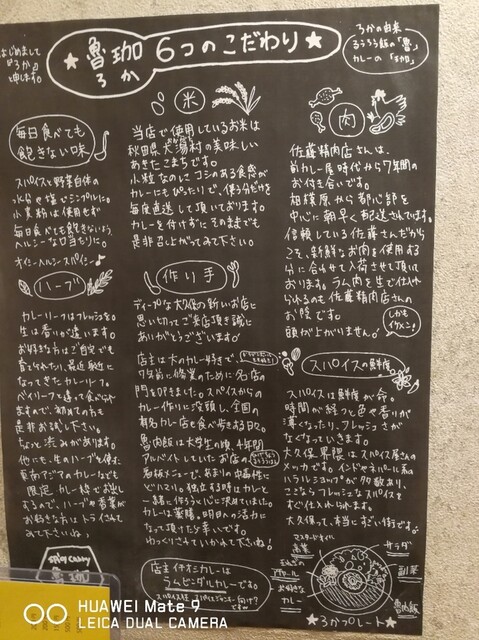 はじめまして
"ろか"と
申します。
★ 魯珈 6つのこだわり ★
ろか
ろかの由来
るうろう飯の「魯」
カレーの「珈」
毎日食べても
飽きない味
スパイスと野菜自体の
水分や塩でシンプルに。
小麦粉は使用せず
毎日食べても飽きないよう
ヘルシーな口当たりに。
オイシーヘルシースパイシー♪
ハーブ
カレーリーフはフレッシュを。
生は香りが違います。
お好きな方はご自宅でも
育てられたり、最近身近に
なってきたカレーリーフ。
ベイリーフと違って食べられ
ますので、初めての方も
是非お試し下さい。
ちょっと渋みがあります。
他にも、生のハーブを使た
東南アジアのカレーなども
限定カレー枠でお出し
するので、ハーブや香菜が
お好きな方はトライされてみ
て下さいね♪
SPICY CURRY
魯珈
米
当店で使用しているお米は
秋田県大潟村の美味しい
あきたこまちです。
小粒なのにコシのある食感が
カレーにもぴったりで、使う分だけを
毎度直送して頂いております。
カレーを付けずにそのままでも
是非召し上がってみて下さい。
作り手
ディープな大久保の新しいお店に
思い切ってご来店頂き誠に
ありがとうございます!
店主は大のカレー好きで、
7年前に修業のために名店の
門を叩きました。スパイスからの
カレー作りに没頭し、全国の
有名カレー店を食べ歩きる日々。
魯肉飯は大学生の頃、4年間
アルバイトしていたお店の
看板メニューで、あまりの中毒性に
ビルマし。独立する時はカレーと
一緒に作ろうと心に決めていました。
カレーは薬膳。明日への活力に
なって頂けたら幸いです。
ゆっくりされていかれて下さいね♪
店主イチオシカレーは
ラムビンダルカレーです。
肉
佐藤精肉店さんは、
前カレー屋時代から7年間の
お付き合いです。
相模原から都心部を
中心に朝早く配送されています。
信頼している佐藤さんだから
こそ、新鮮なお肉を使用する
分に合わせて入荷させて頂いて
おります。ラム肉を生で仕入れ
られるのも佐藤精肉店さんの
お陰です。
頭が上がりません。
しかも
イケメン!
スパイスの鮮度
スパイスは鮮度が命。
時間が経つと色や香りが
薄くなったり、フレッシュさが
なくなっていきます。
大久保界隈はスパイス屋さんの
メッカです。インドやネパール系の
ハラルショップが多数あり、
ここならフレッシュなスパイスを
すぐ仕入れられます。
大久保って、本当にすごい街です。
マスタードオイル
高菜
サラダ
玉ねぎの
アチャール
副菜
お好きな
カレー
魯肉飯
★ろかプレート★
HUAWEI Mate 9
LEICA DUAL CAMERA